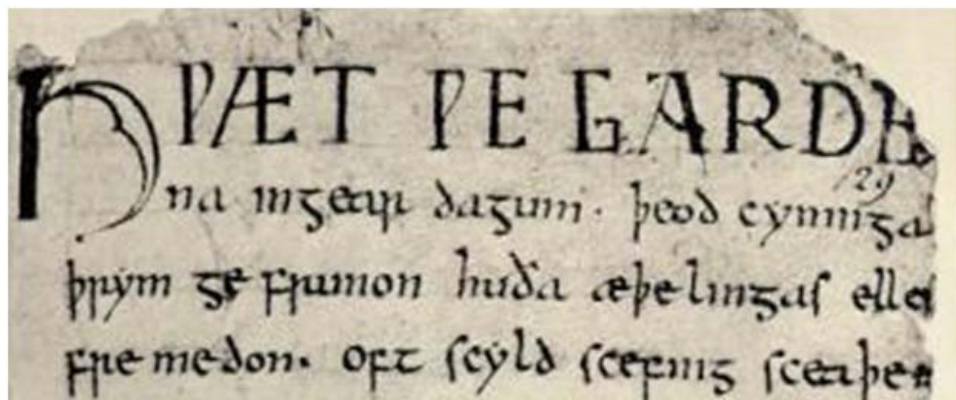 HǷÆT ǷE GARDE
na ingear dagum. þeod cyninga
þrym ge frunon huða æþelingas elle
fremedon. oft scyld scefing sceaþe